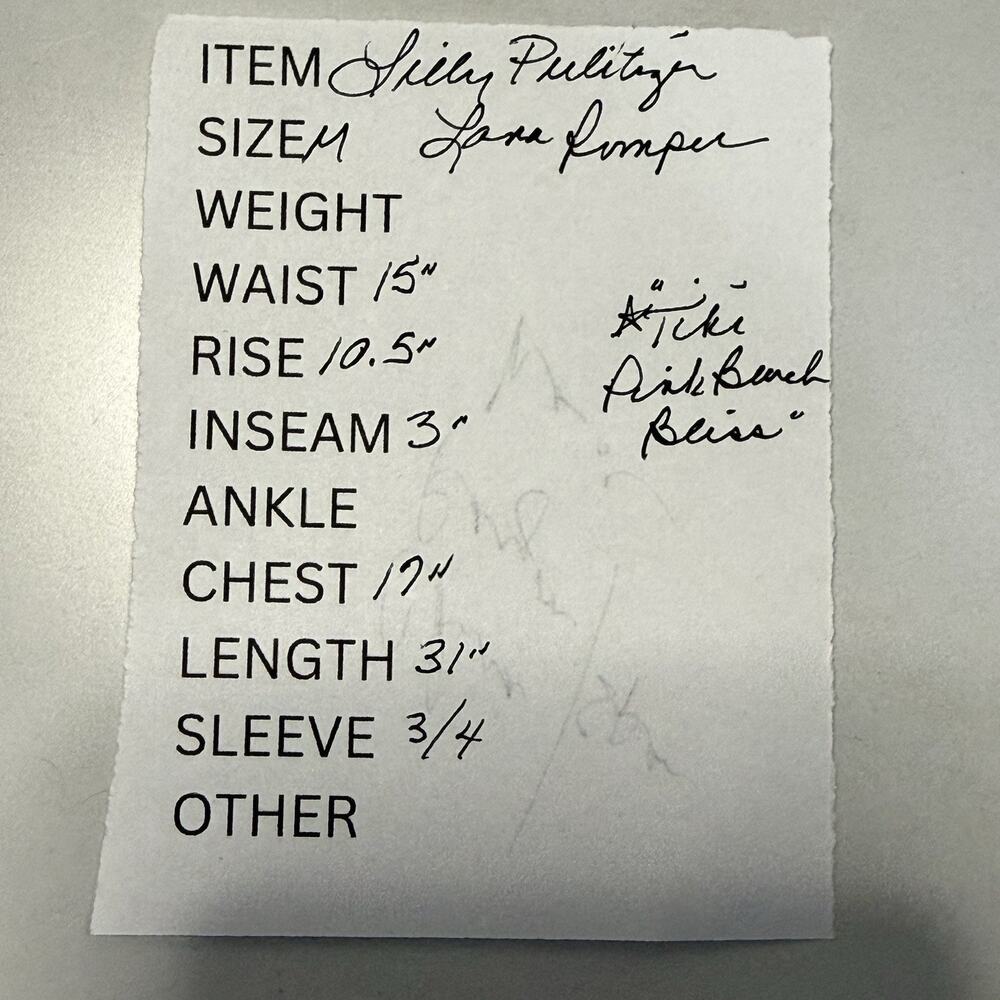 ITEM Lilly Pulitzer
SIZE M Lana Romper
WEIGHT
WAIST 15"
RISE 10.5"
"Tiki
Pink Beach
Bliss"
INSEAM 3"
ANKLE
CHEST 17"
LENGTH 31"
SLEEVE 3/4
OTHER